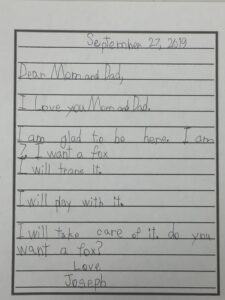 September 27, 2019
Dear Mom and Dad,
I Love you Mom and Dad.
I am glad to be here. I am
7. I want a fox
I will trane It.
I will play with it.
I will take care of it. do you
want a fox?
Love
Joseph